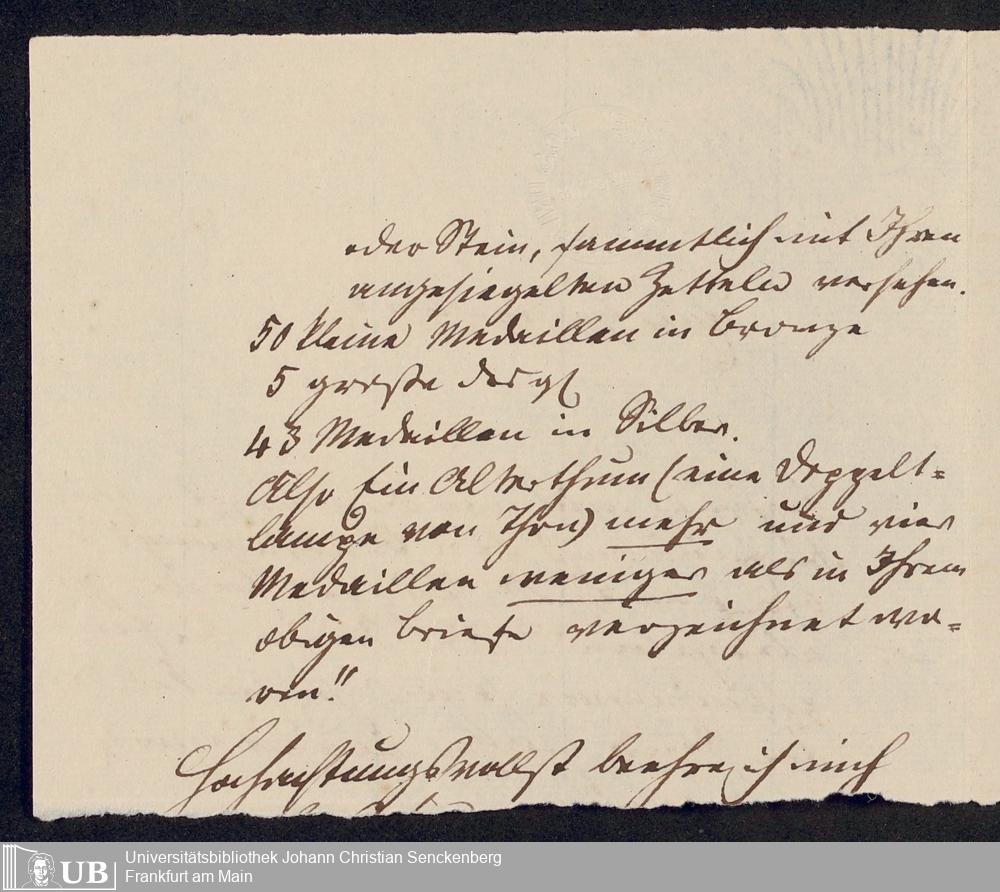 oder Stein, sämmtlich mit Ihren
angesiegelten Zetteln versehen.
50 kleine Medaillen in Bronze
5 große desgl
43 Medaillen in Silber.
Also Ein Alterthum (eine Doppelt=
lampe von Thon) mehr und vier
Medaillen weniger als in Ihrem
obigen Briefe verzeichnet wa=
ren!"
Hochachtungsvollst beehre ich mich
UB
Universitätsbibliothek Johann Christian Senckenberg
Frankfurt am Main